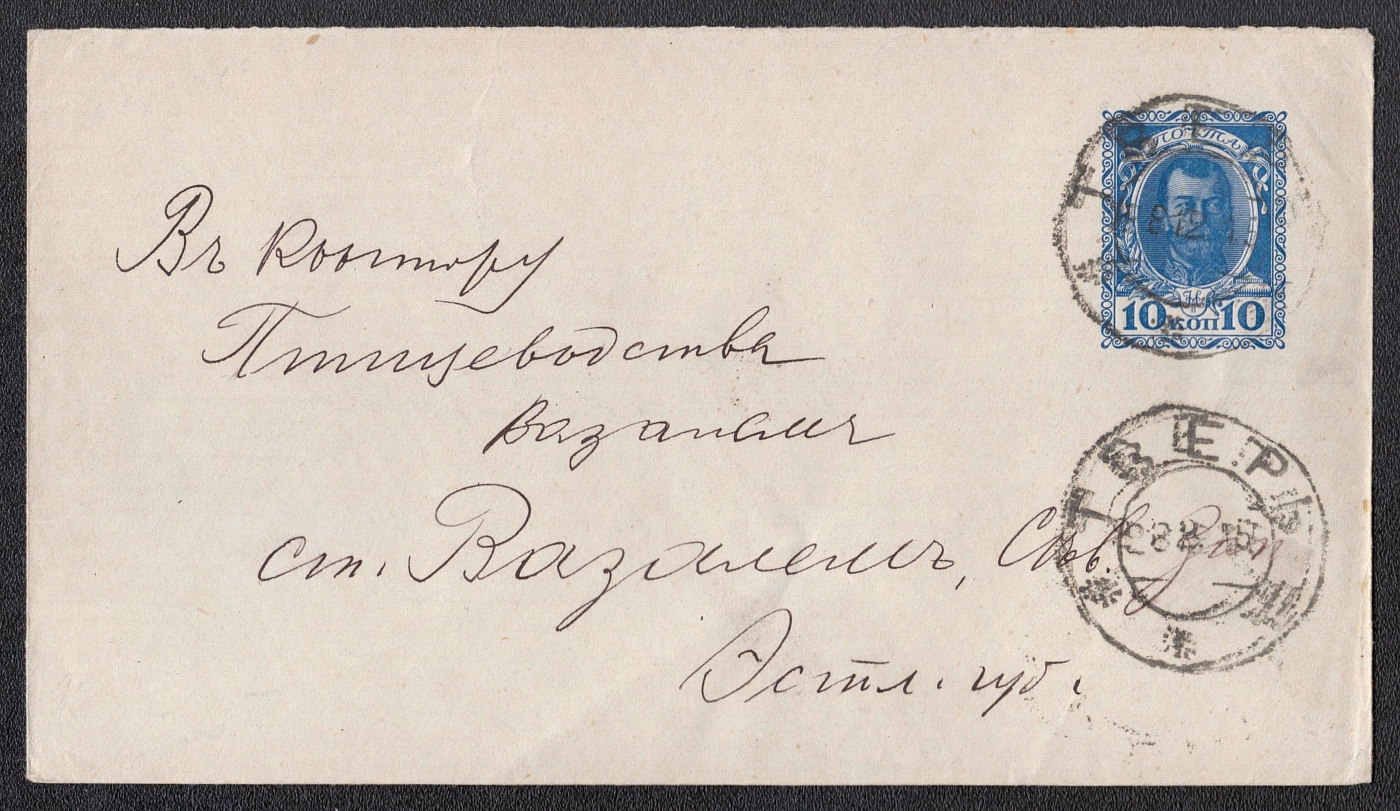 Въ контору
Птицеводства
Вазалемъ
ст. Вазалемъ, Сѣв. Зап
Эстл. губ.
ПОЧТА
10 КОП 10
ТВЕРЬ